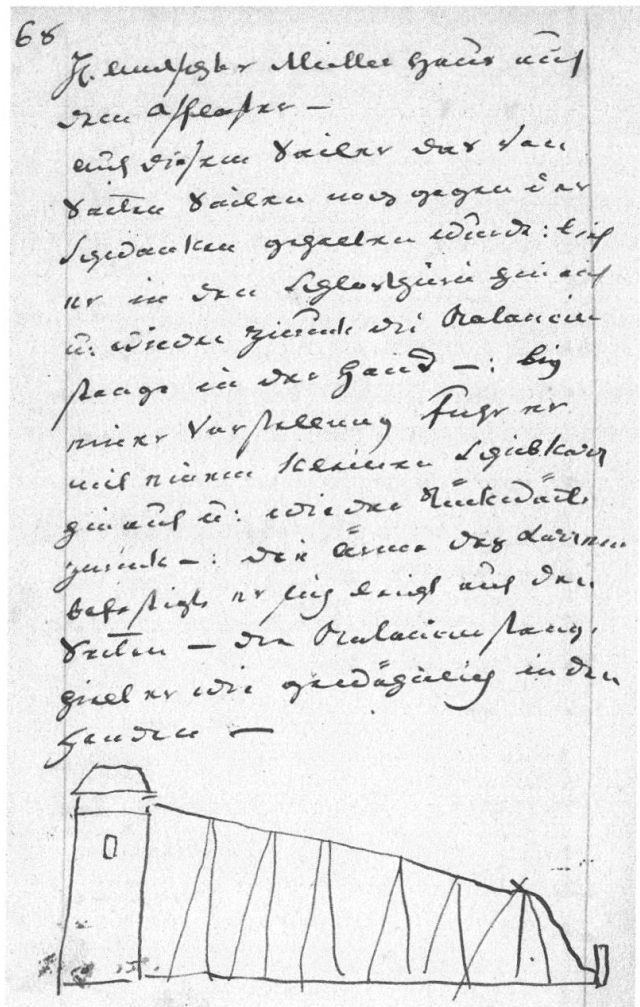 68
Müller Haus auf
dem Pflaster —
auf diesem Seiler der von
Seiten Seilen noch gegen
Schwanken gehalten wurde: lief
er in den Schlosthurn hinauf
u. wieder zurück die Balancier
stange in der Hand —: bey
einer Vorstellung fuhr er
mit einem kleinen Schiebkarn
hinauf u: wieder Rückwärts
zurück —: die Arme des Karren
befestigte er sich auf den
Seiten — die Balancierstange
hielt er wie gewöhnlich in den
Henden —